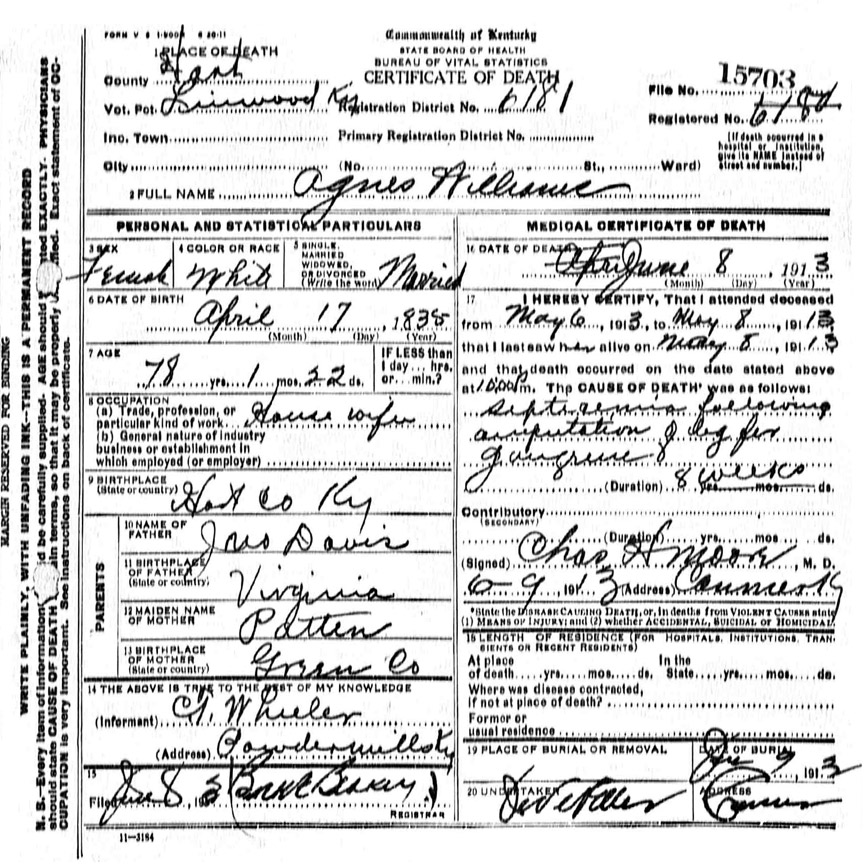 FORM V S 1-900M 6 20-11
Commonwealth of Kentucky
STATE BOARD OF HEALTH
BUREAU OF VITAL STATISTICS
CERTIFICATE OF DEATH
1 PLACE OF DEATH
County Hart
Vot. Pct. Linwood Ky Registration District No. 6181
Inc. Town Primary Registration District No.
City (No. St., Ward)
File No. 15703
Registered No.
[If death occurred in a hospital or institution, give its NAME instead of street and number.]
2 FULL NAME Agnes Williams
PERSONAL AND STATISTICAL PARTICULARS
3 SEX Female
4 COLOR OR RACE White
5 SINGLE, MARRIED WIDOWED, OR DIVORCED (Write the word) Married
6 DATE OF BIRTH
April 17, 1835
(Month) (Day) (Year)
7 AGE
78 yrs. 1 mos. 22 ds.
IF LESS than 1 day... hrs. or... min.?
8 OCCUPATION
(a) Trade, profession, or particular kind of work House wife
(b) General nature of industry business or establishment in which employed (or employer)
9 BIRTHPLACE
(State or country) Hart Co Ky
PARENTS
10 NAME OF FATHER Jno Davis
11 BIRTHPLACE OF FATHER (State or country) Virginia
12 MAIDEN NAME OF MOTHER Patten
13 BIRTHPLACE OF MOTHER (State or country) Green Co
14 THE ABOVE IS TRUE TO THE BEST OF MY KNOWLEDGE
(Informant) Wheeler
(Address) Powdermills Ky
15
Filed June 8, 191
REGISTRAR
11-3184
MEDICAL CERTIFICATE OF DEATH
16 DATE OF DEATH
June 8, 1913
(Month) (Day) (Year)
17 I HEREBY CERTIFY, That I attended deceased
from May 6, 1913, to May 8, 1913
that I last saw her alive on May 8, 1913
and that death occurred on the date stated above
at m. The CAUSE OF DEATH* was as follows:
septicemia following
amputation of leg for
gangrene
(Duration) 8 weeks yrs. mos. ds.
Contributory
(SECONDARY)
(Duration) yrs. mos. ds.
(Signed) Chas H Moore, M. D.
6-9 1913 (Address)
*State the DISEASE CAUSING DEATH, or, in deaths from VIOLENT CAUSES state
(1) MEANS OF INJURY; and (2) whether ACCIDENTAL, SUICIDAL or HOMICIDAL.
18 LENGTH OF RESIDENCE (FOR HOSPITALS, INSTITUTIONS, TRANSIENTS OR RECENT RESIDENTS)
At place of death yrs. mos. ds. In the State yrs. mos. ds.
Where was disease contracted, if not at place of death?
Former or usual residence
19 PLACE OF BURIAL OR REMOVAL
DATE OF BURIAL
9, 1913
20 UNDERTAKER
ADDRESS
MARGIN RESERVED FOR BINDING
WRITE PLAINLY, WITH UNFADING INK---THIS IS A PERMANENT RECORD